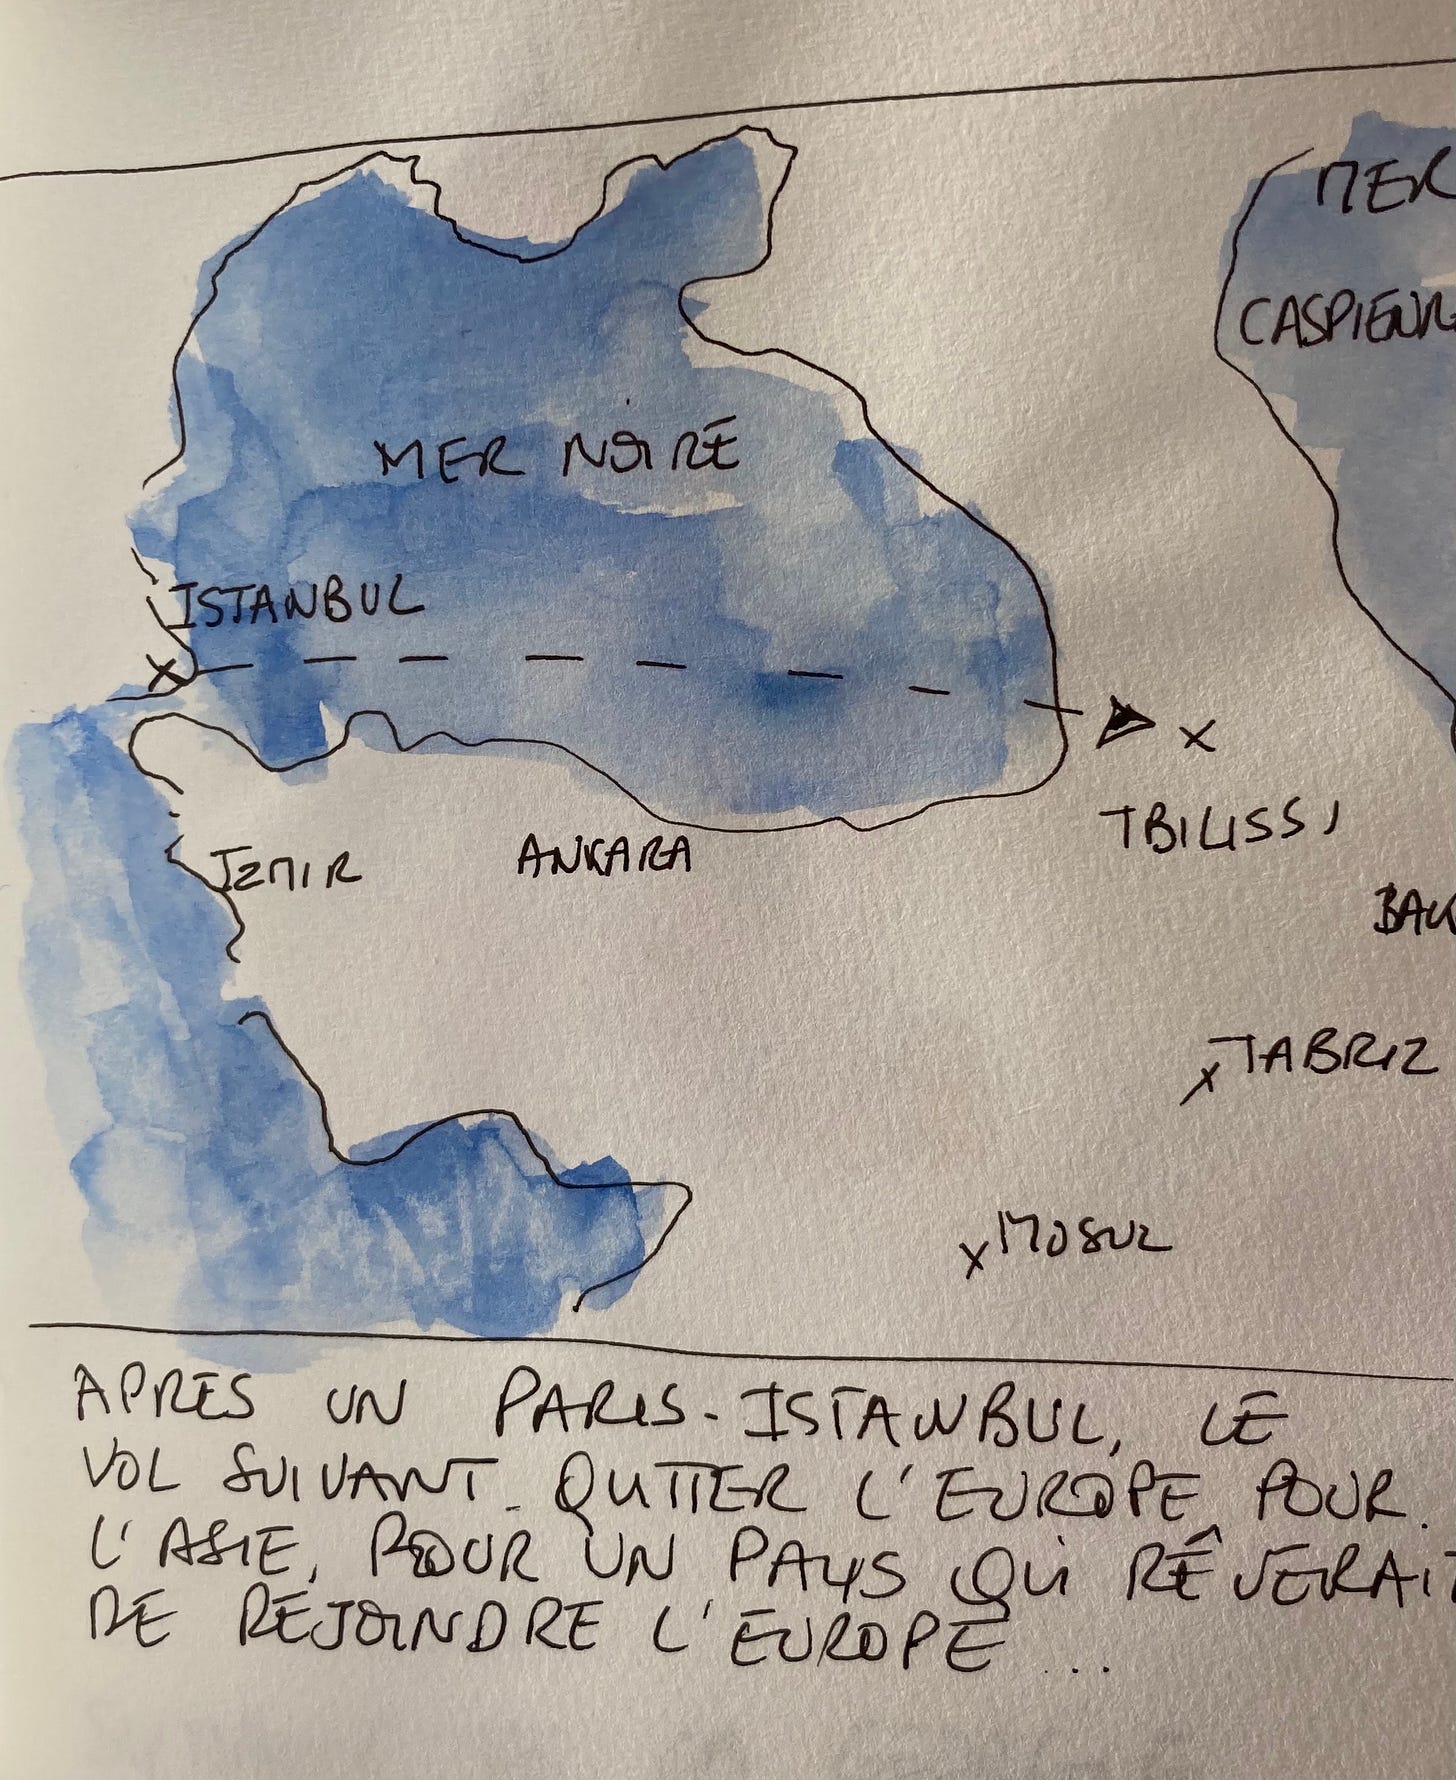 MER
CASPIENNE
MER NOIRE
ISTANBUL
TBILISSI
IZMIR
ANKARA
BAK
TABRIZ
MOSUL
APRES UN PARIS-ISTANBUL, LE
VOL SUIVANT. QUITTER L'EUROPE POUR
L'ASIE, POUR UN PAYS QUI RÊVERAIT
DE REJOINDRE L'EUROPE...